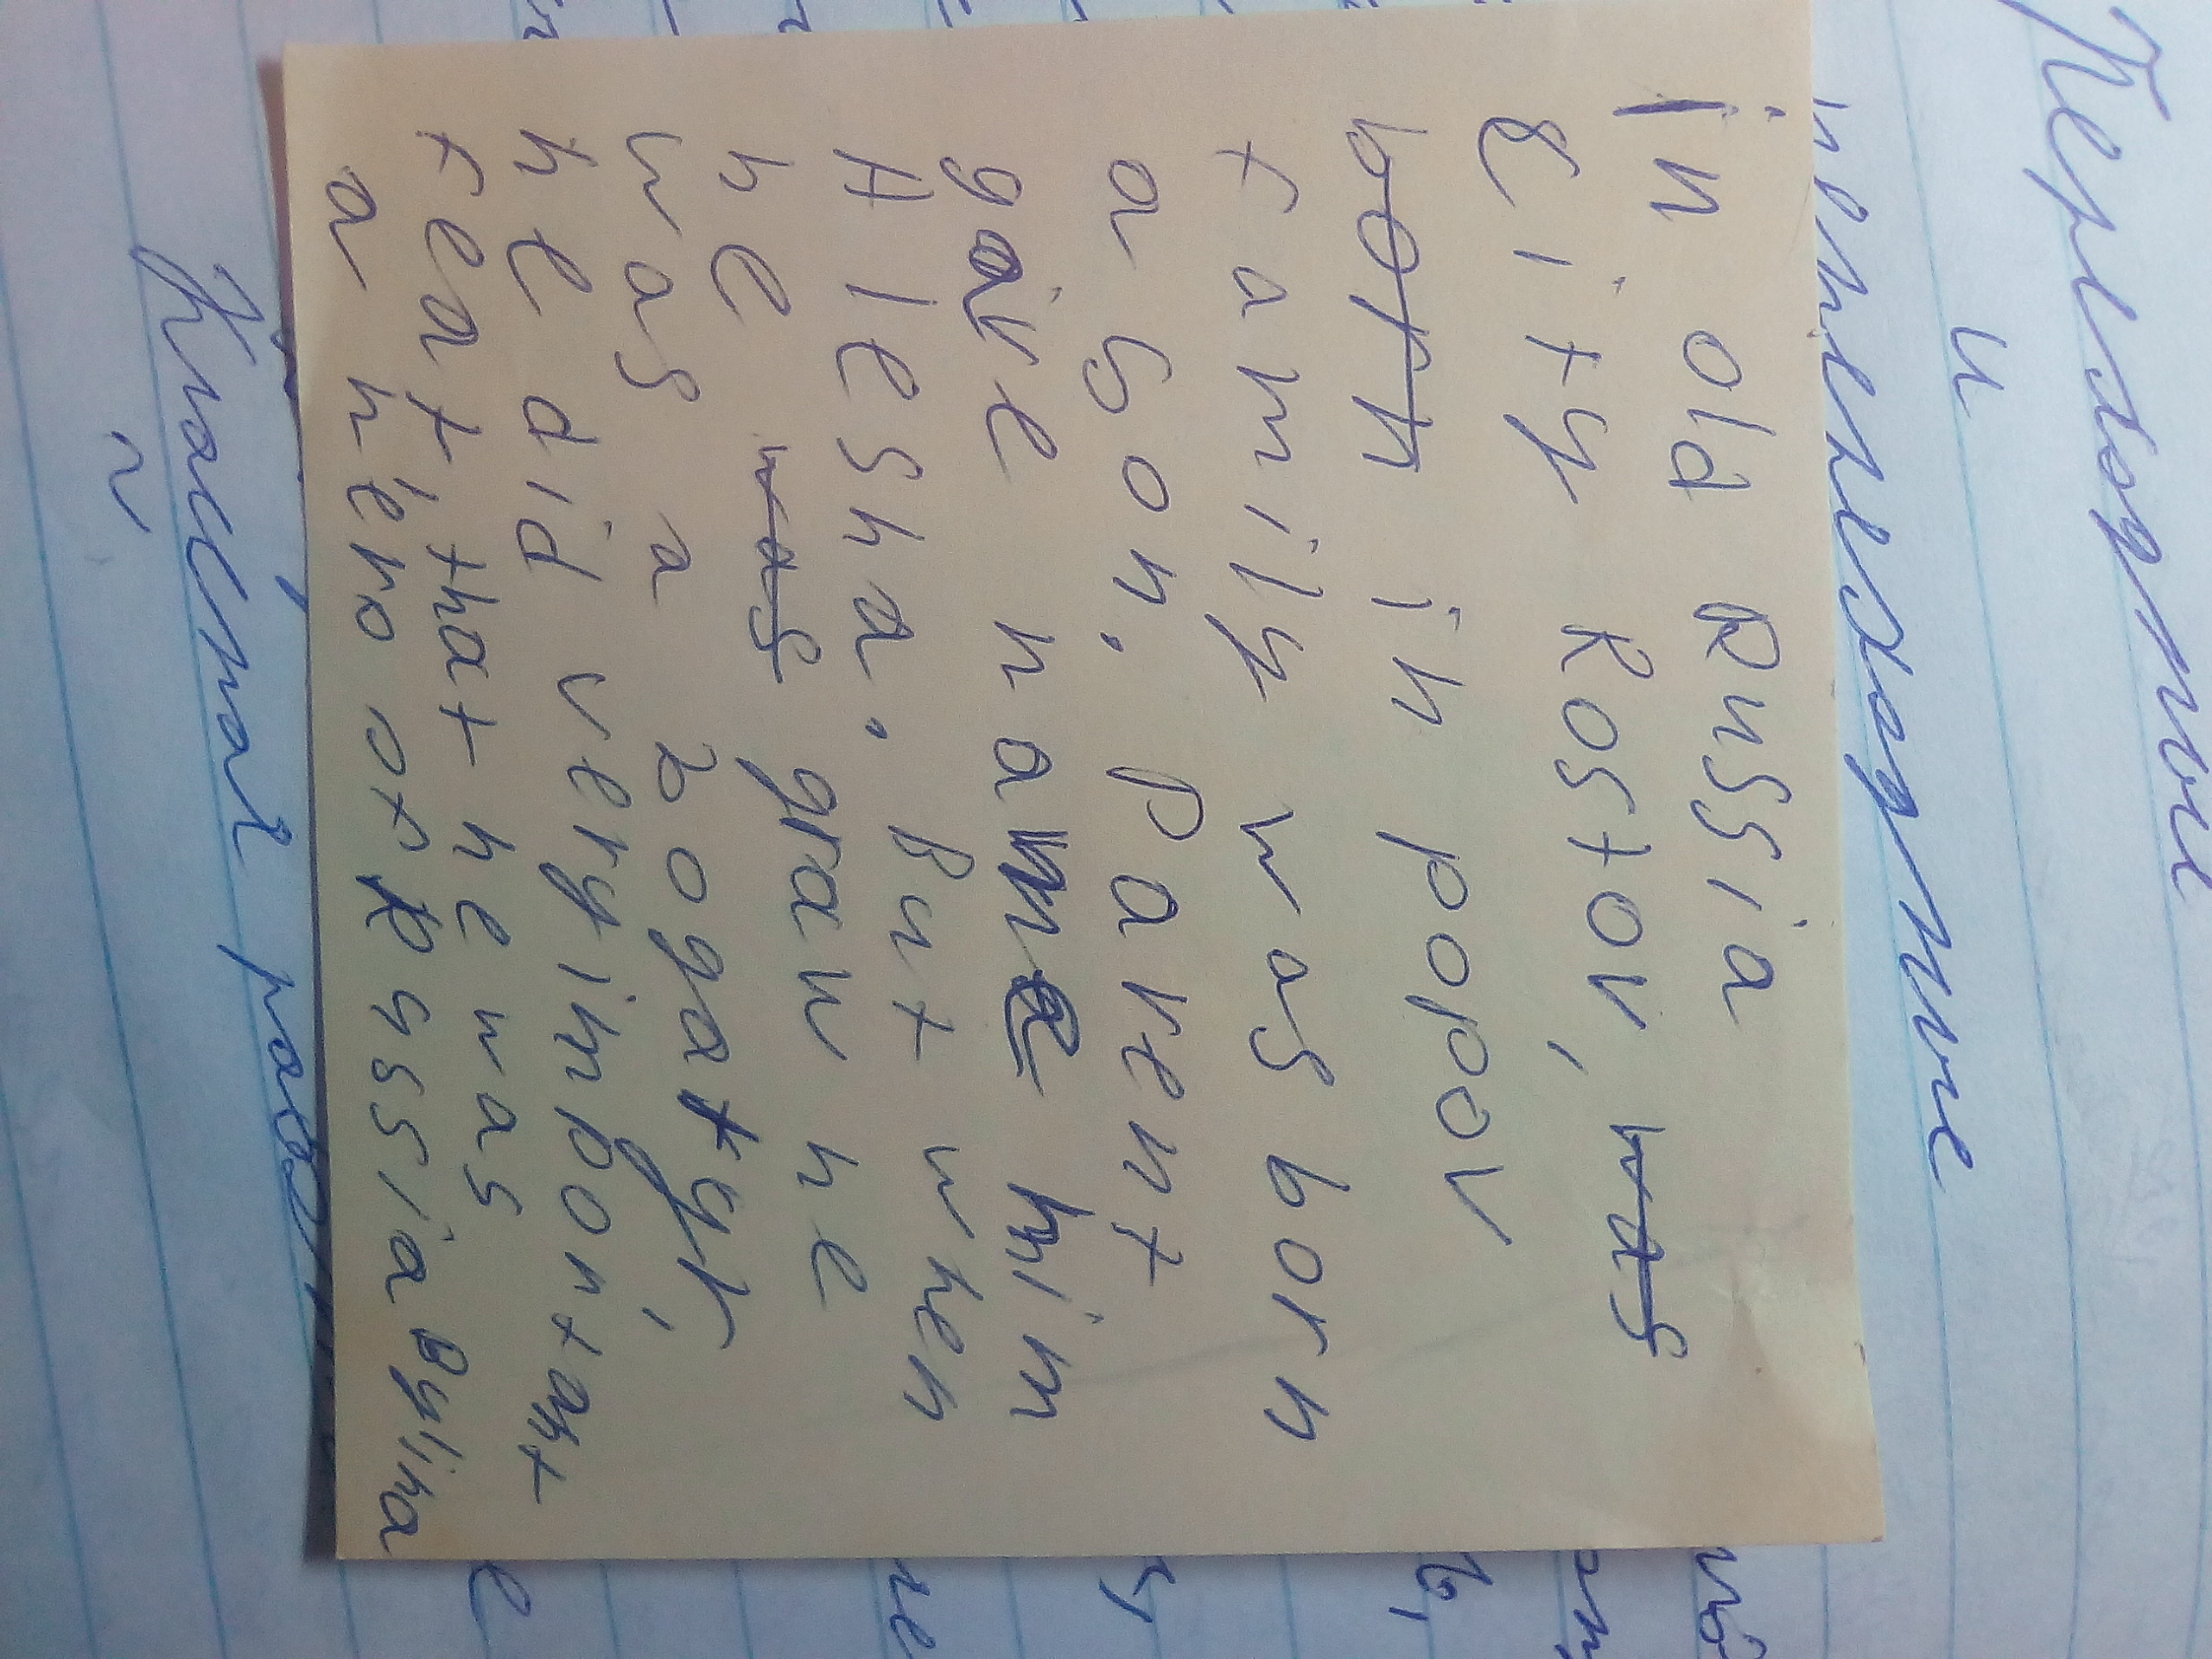 Переходные
и
непереходные
in old Russia
city Rostov, was
born in popov
family was born
a son. Parent
gave name him
Alesha. But when
he was graw he
was a Bogatyr,
he did very important
feat that he was
a hero of Russia Bylina
Классная работа